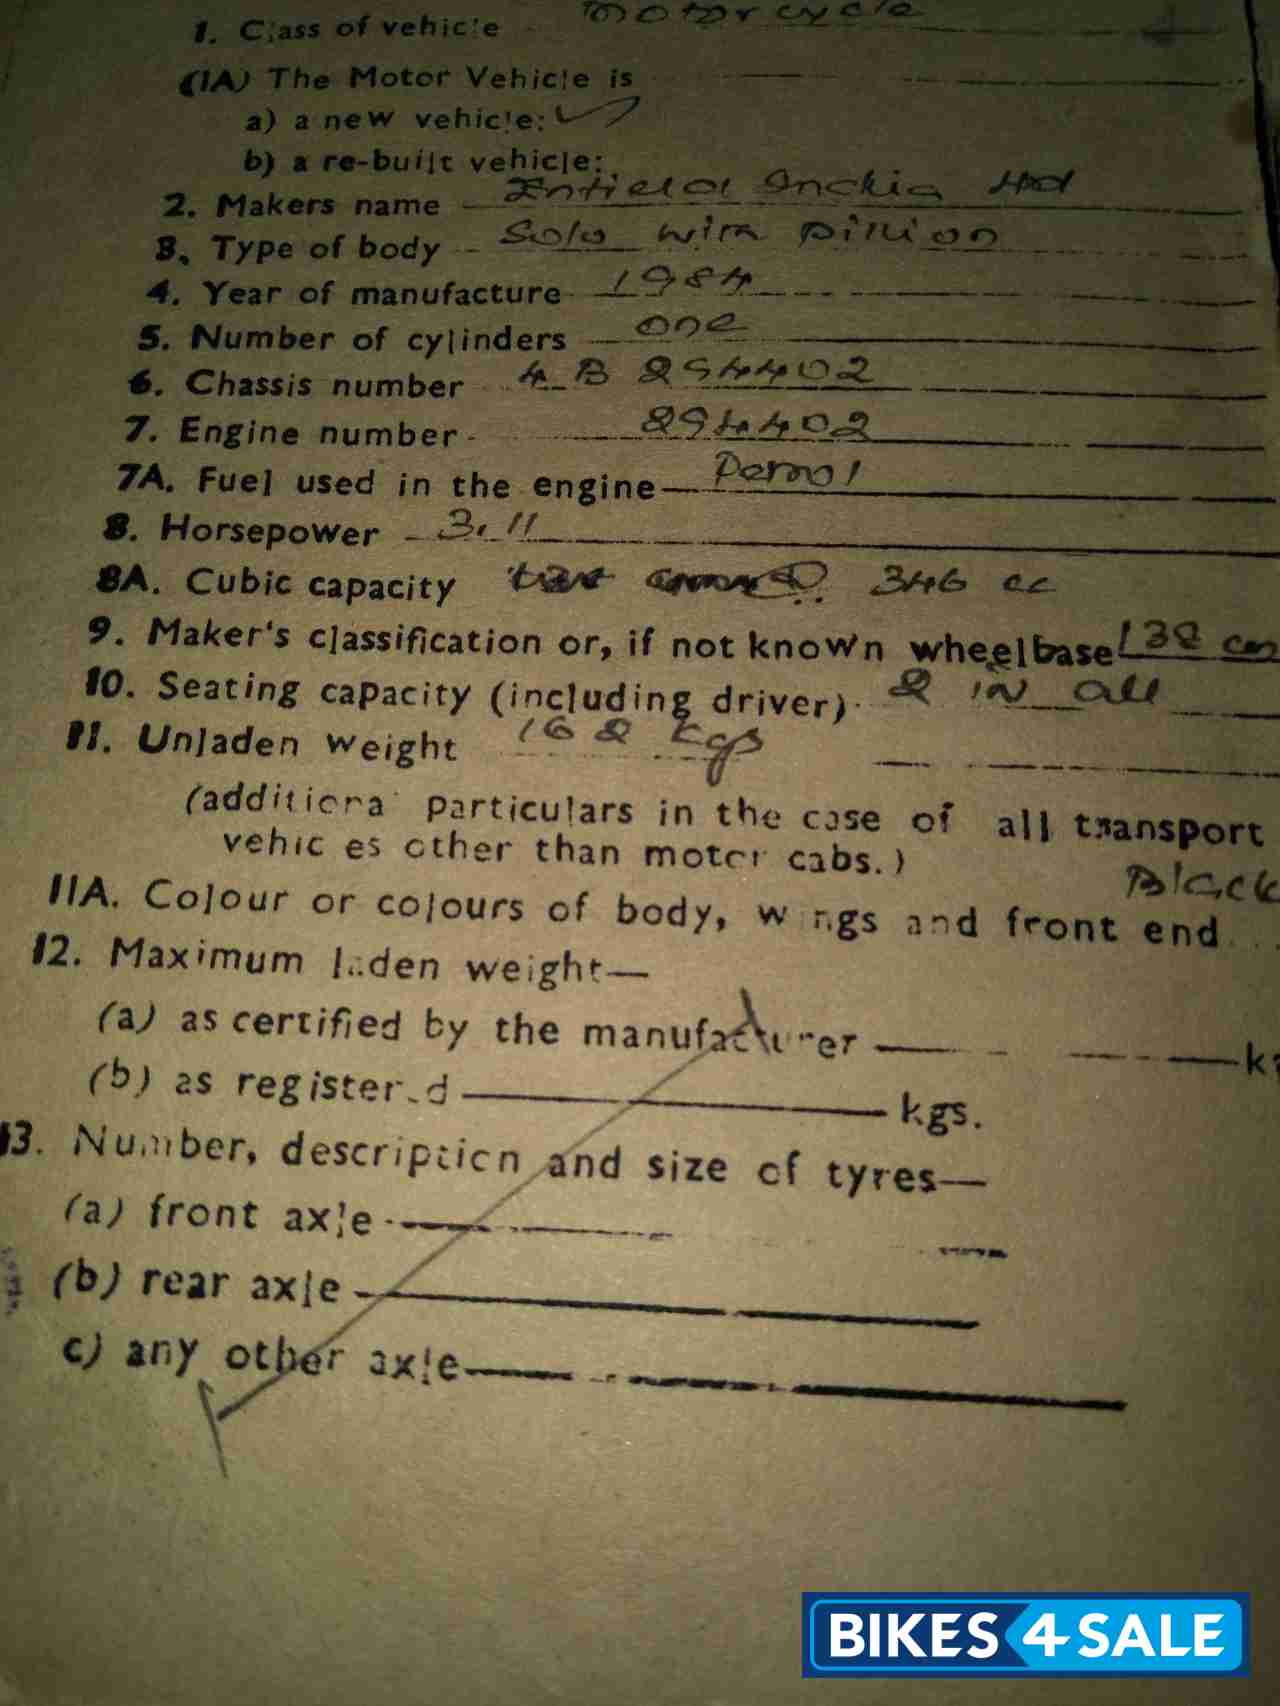 1. Class of vehicle Motorcycle
(1A) The Motor Vehicle is
a) a new vehicle: ✓
b) a re-built vehicle:
2. Makers name Enfield India Ltd
3. Type of body Solo with pillion
4. Year of manufacture 1984
5. Number of cylinders one
6. Chassis number 4 B 894402
7. Engine number 894402
7A. Fuel used in the engine Petrol
8. Horsepower 3.11
8A. Cubic capacity 346 cc
9. Maker's classification or, if not known wheelbase 138 cm
10. Seating capacity (including driver) 2 in all
11. Unladen weight 168 kgs
(additional particulars in the case of all transport
vehicles other than motor cabs.)
Black
11A. Colour or colours of body, wings and front end
12. Maximum laden weight—
(a) as certified by the manufacturer
(b) as registered kgs.
13. Number, description and size of tyres—
(a) front axle
(b) rear axle
c) any other axle
BIKES4SALE